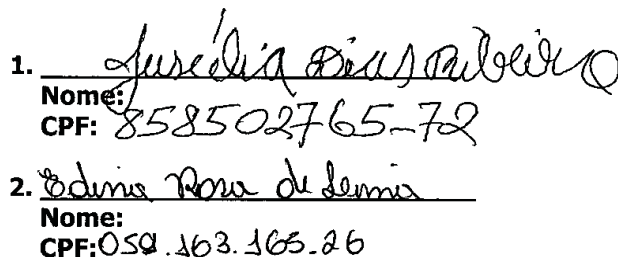 1. Jusélia Dias Ribeiro
Nome:
CPF: 858502765-72
2. Edina Rosa de
Nome:
CPF: 059.163.165-26